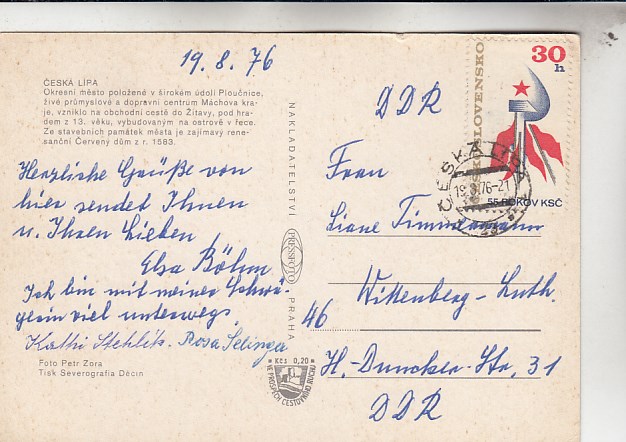 19. 8. 76
ČESKÁ LÍPA
Okresní město položené v širokém údolí Ploučnice,
živé průmyslové a dopravní centrum Máchova kra-
je, vzniklo na obchodní cestě do Žitavy, pod hra-
dem z 13. věku, vybudovaným na ostrově v řece.
Ze stavebních památek města je zajímavý rene-
sanční Červený dům z r. 1583.
Herzliche Grüße von
hier sendet Ihnen
u. Ihren Lieben
Elsa Böhm
Ich bin mit meiner Schwä-
gerin viel unterwegs
Kathi Stehlik. Rosa
Foto Petr Zora
Tisk Severografia Děčín
NAKLADATELSTVÍ
PRESSFOTO
PRAHA
Kčs 0,20
VE PROSPĚCH CESTOVNÍHO RUCHU
ČESKOSLOVENSKO
30
h
55 ROKOV KSČ
ČESKÁ LÍPA
19.8.76-21
DDR
Frau
Liane Timmermann
Wittenberg-Luth.
46
H.-Duncker-Str. 31
DDR